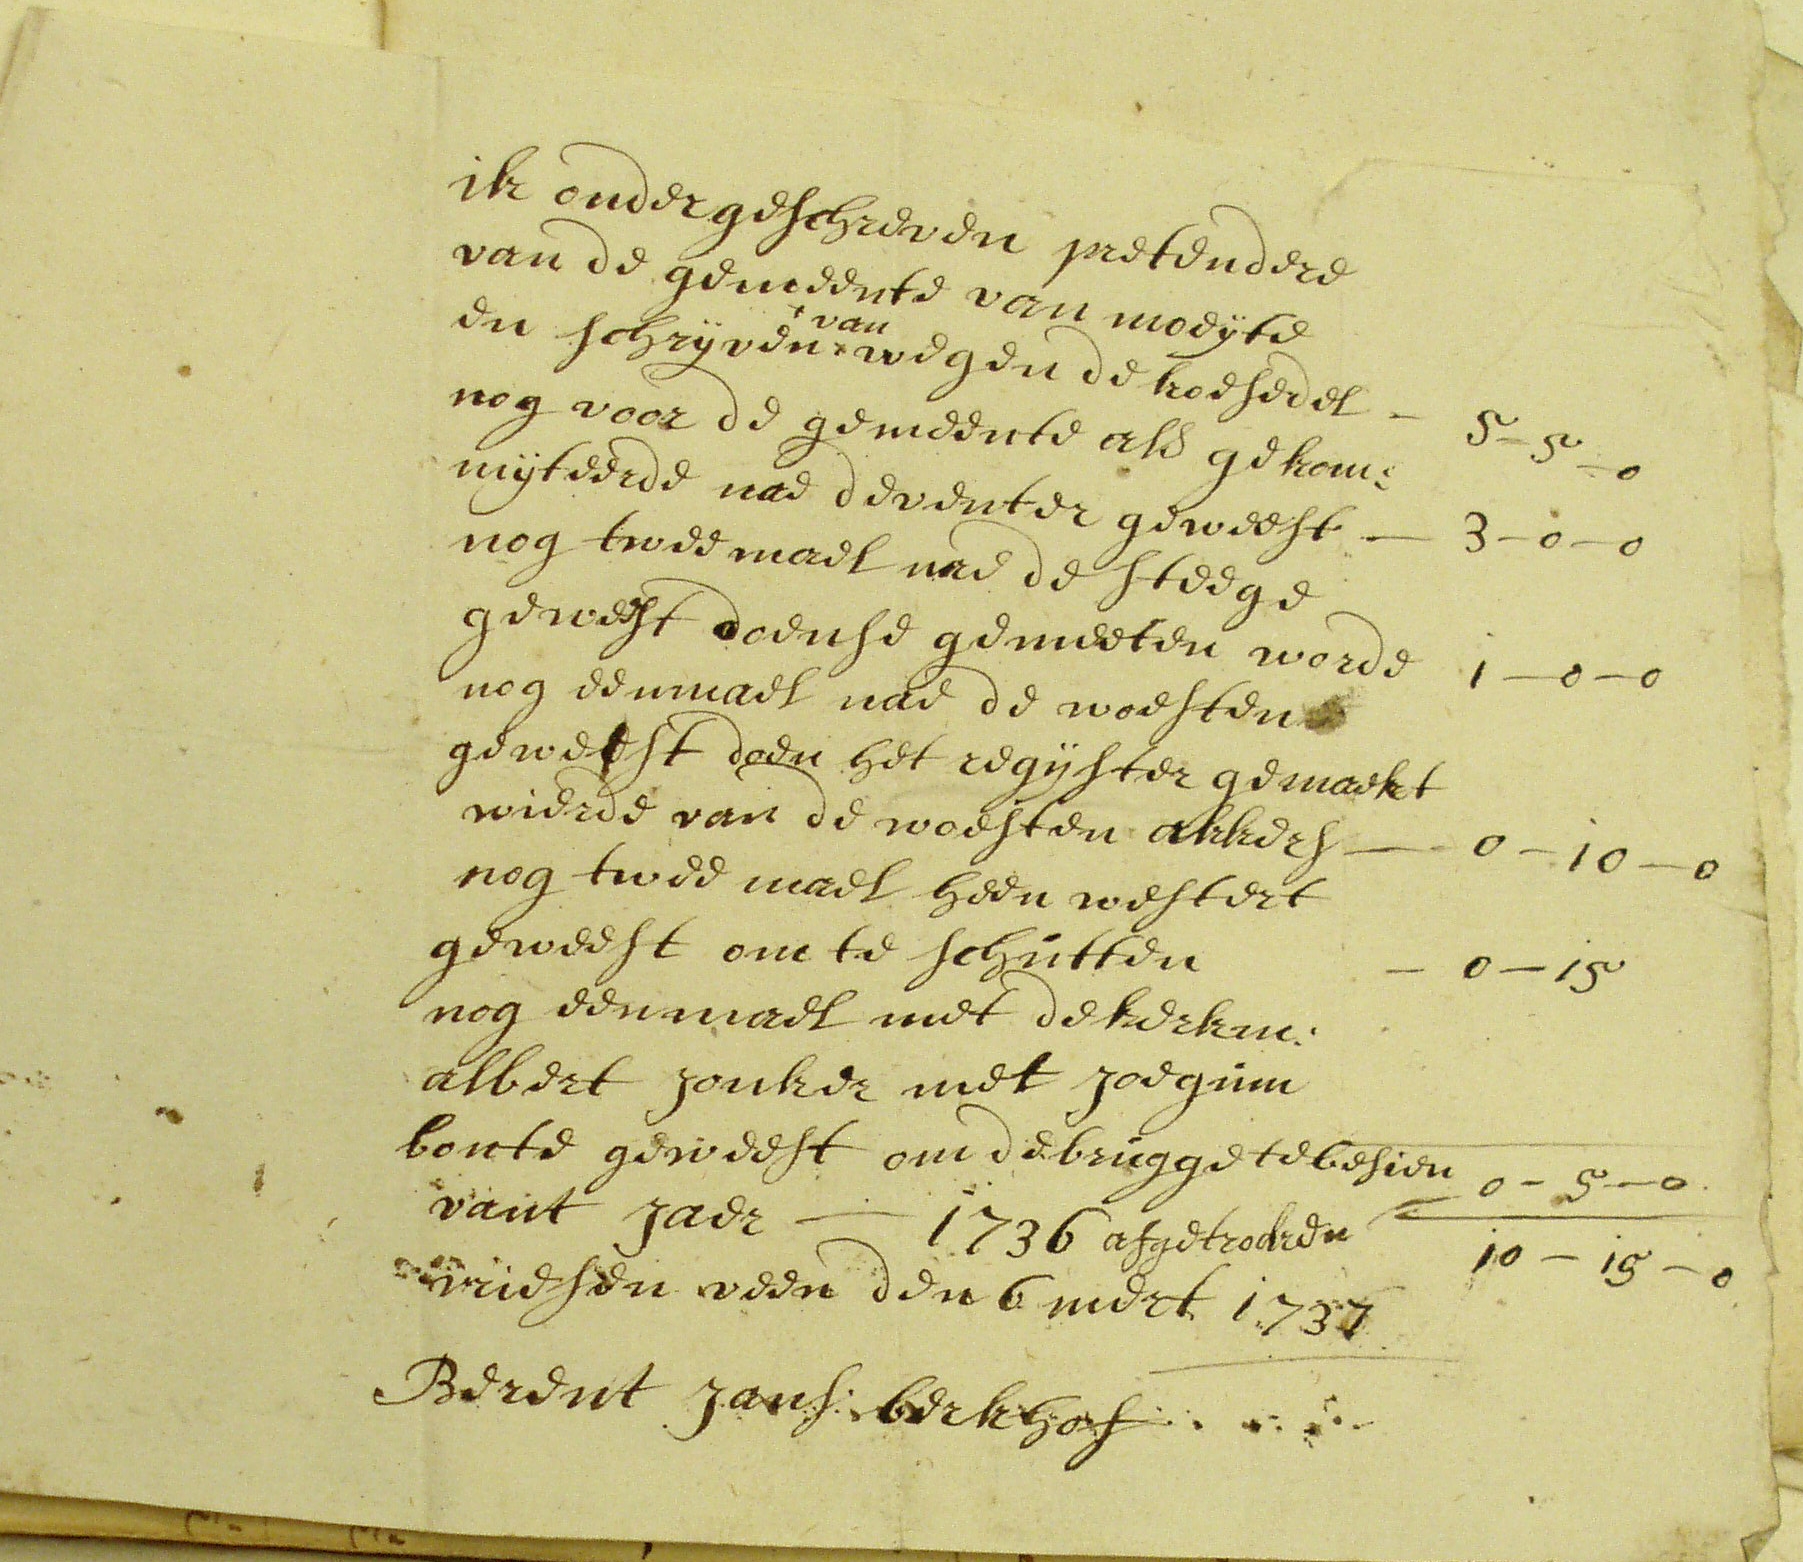 ik ondergeschreven pretendere
van de gemeente van moeyte
en schryven van wegen de koesedel - 5-5-0
nog voor de gemeente als gekom:
myteerde nae deventer geweest — 3-0-0
nog twee mael nae de steege
geweest doense gemeeten worde 1-0-0
nog eenmael nae de woesten
geweest doen het regyster gemaekt
wierde van de woesten akkers — 0-10-0
nog twee mael heen westert
geweest om te schutten - 0-15
nog eenmael met de kerkm:
albert jonker met joegum
bonte geweest om de brugge te besien 0-5-0
vant jaer — 1736 afgetrocken 10-15-0
vriesen veen den 6 mert 1737
Berent jans: berkhof